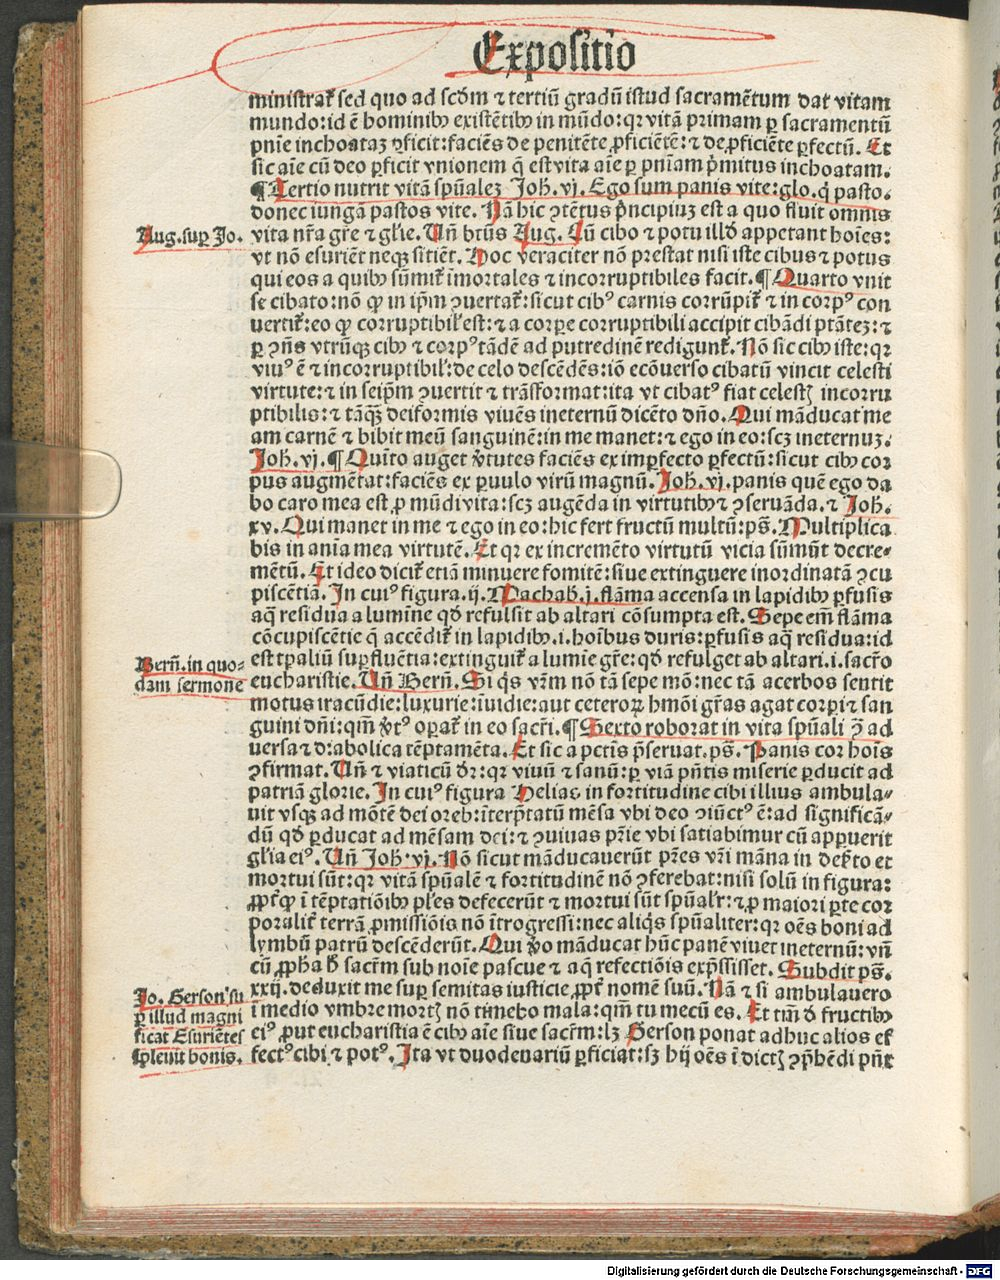 Expositio
ministrat᷑ sed quo ad scđm ⁊ tertiū gradū istud sacramētum dat vitam
mundo: id ē hominibꝰ existētibꝰ in mūdo: qꝛ vitā primam ꝑ sacramentū
pnīe inchoataꝫ ꝑficit: faciēs de penitēte ꝓficiētē: ⁊ de ꝓficiēte ꝑfectū. Et
sic aīe cū deo ꝑficit vnionem q̄ est vita aīe ꝑ pnīam pͥmitus inchoatam.
¶ Tertio nutrit vitā spūaleꝫ Joh̄. vj. Ego sum panis vite: glo. q̇ pasto.
donec iungā pastos vite. Nā hic ꝯtētus pͥncipiuꝫ est a quo fluit omnis
Aug. suꝑ Jo.
vita nr̄a gr̄e ⁊ gl̄ie. Vn̄ btūs Aug. Cū cibo ⁊ potu illđ appetant hoīes:
vt nō esuriēt neqꝫ sitiēt. Hoc veraciter nō prestat nisi iste cibus ⁊ potus
qui eos a quibꝰ sūmit᷑ īmortales ⁊ incorruptibiles facit. ¶ Quarto vnit
se cibato: nō ꝙ in ip̄m ꝯuertat᷑: sicut cibꝰ carnis corrūpit᷑ ⁊ in corpꝰ con
uertit᷑: eo ꝙ corruptibil᷑ est: ⁊ a corpe corruptibili accipit cibādi ptāteꝫ: ⁊
ꝑ ꝯn̄s vtrūqꝫ cibꝰ ⁊ corpꝰ tādē ad putredinē redigunt᷑. Nō sic cibꝰ iste: qꝛ
viuꝰ ē ⁊ incorruptibil᷑: de celo descēdēs: iō ecōuerso cibatū vincit celesti
virtute: ⁊ in seip̄m ꝯuertit ⁊ trāsformat: ita vt cibatꝰ fiat celestꝭ incorru
ptibilis: ⁊ tāqꝫ̄ deiformis viuēs ineternū dicēto dn̄o. Qui māducat me
am carnē ⁊ bibit meū sanguinē: in me manet: ⁊ ego in eo: scꝫ ineternuꝫ.
Joh̄. vj. ¶ Quīto auget ꝟtutes faciēs ex imꝑfecto ꝑfectū: sicut cibꝰ cor
pus augmētat: faciēs ex ꝑuulo virū magnū. Joh̄. vj. panis quē ego da
bo caro mea est ꝓ mūdi vita: scꝫ augēda in virtutibꝰ ⁊ ꝯseruāda. ⁊ Joh̄.
xv. Qui manet in me ⁊ ego in eo: hic fert fructū multū: ps̄. Multiplica
bis in anīa mea virtutē. Et qꝛ ex incremēto virtutū vicia sūmūt decre-
mētū. Et ideo dicit᷑ etiā minuere fomitē: siue extinguere inordinatā ꝯcu
piscētiā. In cuiꝰ figura. ij. Machab̄. j. flāma accensa in lapidibꝰ ꝑfusis
aq̄ residua a lumine qđ refulsit ab altari cōsumpta est. Sepe em̄ flāma
cōcupiscētie q̄ accēdit᷑ in lapidibꝰ. i. hoībus duris: ꝑfusis aq̄ residua: id
Bern̄. in quo-
est tꝑaliū suꝑfluētia: extinguit᷑ a lumīe gr̄e: qđ refulget ab altari. i. sacr̄o
dam sermone
eucharistie. Vn̄ Bern̄. Si q̇s vr̄m nō tā sepe mō: nec tā acerbos sentit
motus iracūdie: luxurie: īuidie: aut ceteroꝝ hmōi gr̄as agat corpi ⁊ san
guini dn̄i: qm̄ ꝟtꝰ oꝑat᷑ in eo sacr̄i. ¶ Sexto roborat in vita spūali ꝯ̄ ad
uersa ⁊ diabolica tēptamēta. Et sic a pctīs p̄seruat. ps̄. Panis cor hoīs
ꝯfirmat. Vn̄ ⁊ viaticū dr̄: qꝛ viuū ⁊ sanū: ꝑ viā pn̄tis miserie ꝑducit ad
patriā glorie. In cuiꝰ figura Helias in fortitudine cibi illius ambula-
uit vsqꝫ ad mōtē dei oreb: īterp̄tatū mēsa vbi deo ꝯiūctꝰ ē: ad significā-
dū qđ ꝑducat ad mēsam dei: ⁊ ꝯuiuas pr̄ie vbi satiabimur cū apparuerit
gl̄ia eiꝰ. Vn̄ Joh̄. vj. Nō sicut māducauerūt pr̄es vr̄i māna in dēꝑto et
mortui sūt: qꝛ vitā spūalē ⁊ fortitudinē nō ꝯferebat: nisi solū in figura:
ꝓpt᷑ꝙ ī tēptatiōibꝰ pl̄es defecerūt ⁊ mortui sūt spūalr᷑: ⁊ ꝓ maiori ꝑte cor
poralit᷑ terrā ꝓmissiōis nō ītrogressi: nec aliq̇s spūaliter: qꝛ oēs boni ad
lymbū patrū descēderūt. Qui ꝟo māducat hūc panē viuet ineternū: vn̄
cū ꝓph̄a ħ sacr̄m sub noīe pascue ⁊ aq̄ refectiōis exp̄ssisset. Subdit ps̄.
Jo. Gerson' su
xxij. deduxit me suꝑ semitas iusticie ꝓpt᷑ nomē suū. Nā ⁊ si ambulauero
ꝑ illud magni
ī medio vmbre mortꝭ nō timebo mala: qm̄ tu mecū es. Et tm̄ đ fructibꝰ
ficat Esuriētes
eiꝰ ꝓut eucharistia ē cibꝰ aīe siue sacr̄m: lꝫ Gerson ponat adhuc alios ef
īpleuit bonis.
fectꝰ cibi ⁊ potꝰ. Ita vt duodenariū ꝑficiat: sꝫ hij oēs ī dictꝭ ꝯp̄hēdi pn̄t
Digitalisierung gefördert durch die Deutsche Forschungsgemeinschaft - DFG